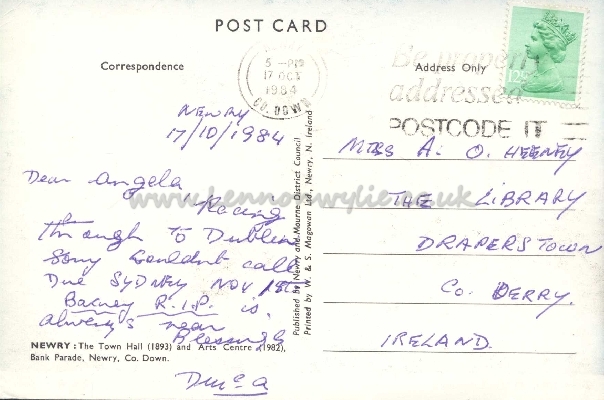 POST CARD
Correspondence
Address Only
5-PM
17 OCT
1984
CO. DOWN
Be properly
addressed
POSTCODE IT
12½
NEWRY
17/10/1984
Dear Angela
Racing
through to Dublin
Sorry Couldn't call
Due SYDNEY NOV 1st
Barney R.I.P. is
always near
Blessings
NEWRY: The Town Hall (1893) and Arts Centre (1982),
Bank Parade, Newry, Co. Down.
Published by Newry and Mourne District Council
Printed by W. & S. Magowan Ltd., Newry, N. Ireland
MISS A. O. HEENEY
THE LIBRARY
DRAPERSTOWN
Co. DERRY.
IRELAND.
www.lennonwylie.co.uk